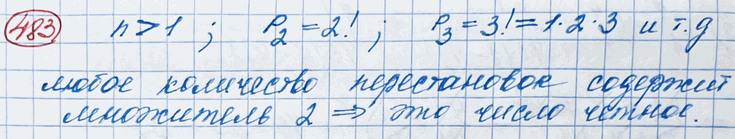 483 n > 1 ; P₂ = 2! ; P₃ = 3! = 1·2·3 и т.д
любое количество перестановок содержит
множитель 2 ⇒ это число четное.